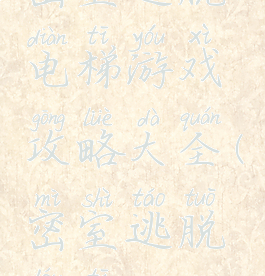 diàn tī yóu xì
电梯游戏
gōng lüè dà quán
攻略大全(
mì shì táo tuō
密室逃脱